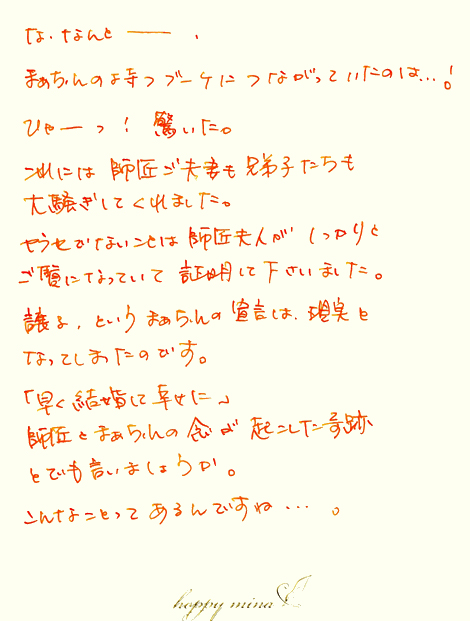 な、なんと ―― 、
まあちゃんの持つブーケにつながっていたのは…!
ひゃーっ! 驚いた。
これには 師匠ご夫妻も兄弟子たちも
大騒ぎしてくれました。
やらせでないことは 師匠夫人が しっかりと
ご覧になっていて 証明して下さいました。
譲る、という まあちゃんの宣言は、現実と
なってしまったのです。
「早く結婚して幸せに」
師匠とまあちゃんの念が 起こした奇跡
とでも言いましょうか。
こんなことって あるんですね … 。
happy mina